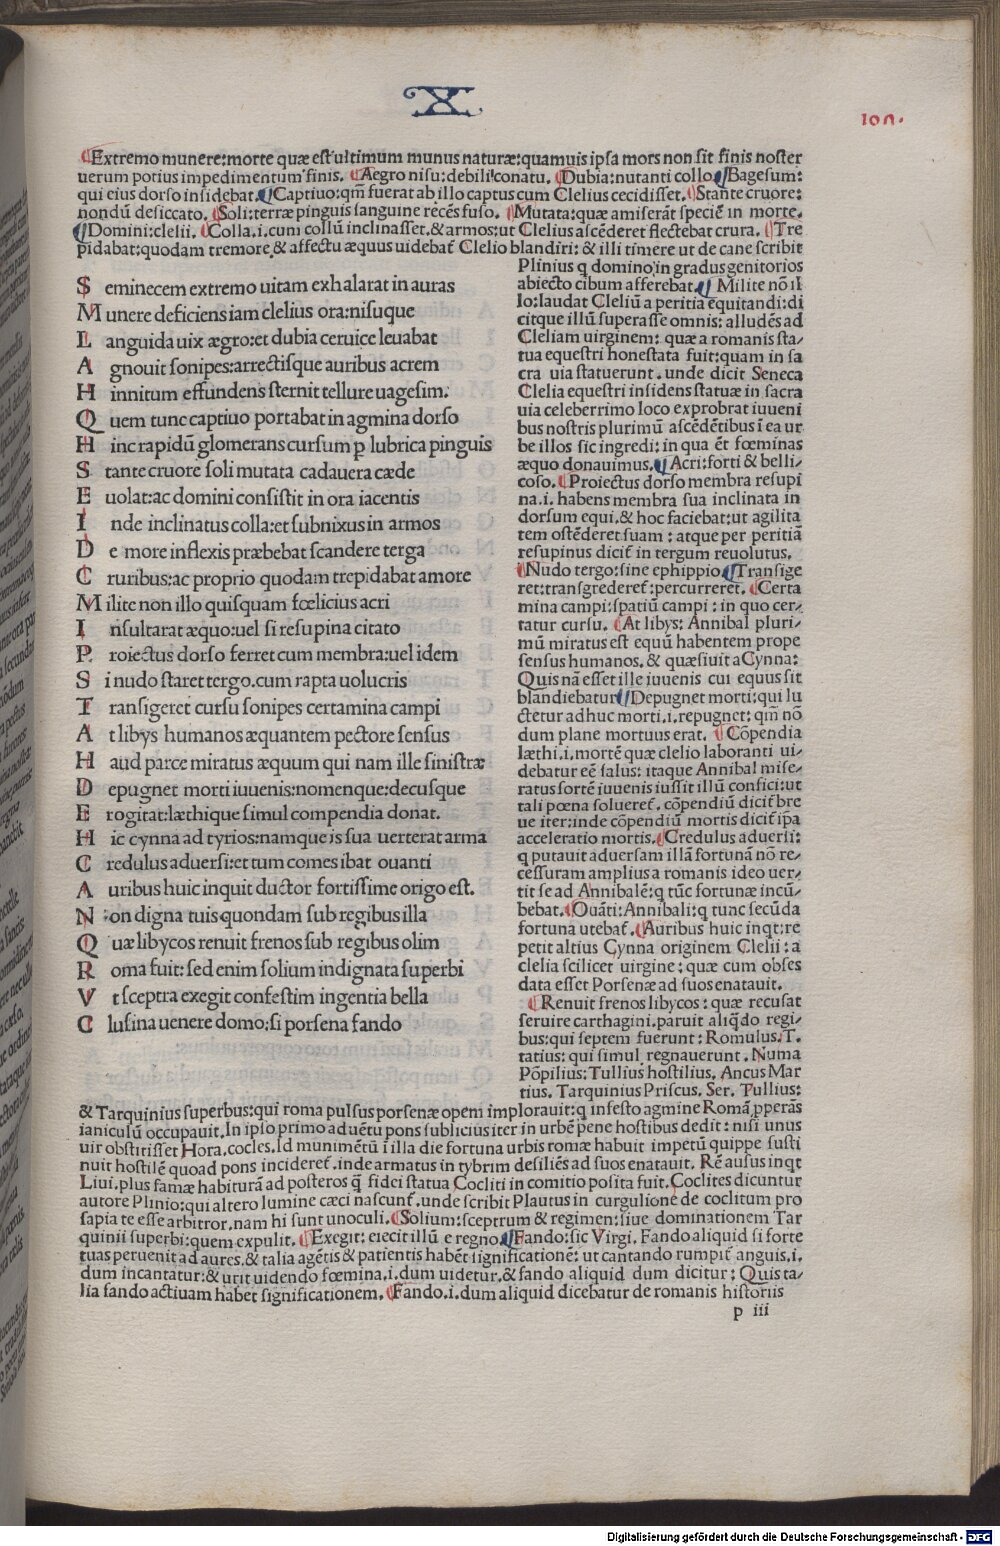 X
109.
¶Extremo munere:morte quæ est ultimum munus naturæ:quamuis ipsa mors non sit finis noster
uerum potius impedimentum finis. ¶Aegro nisu:debili conatu. ¶Dubia:nutanti collo.¶Bagesum:
qui eius dorso insidebat.¶Captiuo:qm̄ fuerat ab illo captus cum Clelius cecidisset.¶Stante cruore:
nondū desiccato. ¶Soli:terræ pinguis sanguine recēs fuso. ¶Mutata:quæ amiserāt speciē in morte.
¶Domini:clelii. ¶Colla.i.cum collū inclinasset.&armos:ut Clelius ascēderet flectebat crura. ¶Tre
pidabat:quodam tremore.& affectu æquus uidebat̄ Clelio blandiri:& illi timere ut de cane scribit
S eminecem extremo uitam exhalarat in auras
M unere deficiens iam clelius ora:nisuque
L anguida uix ægro:et dubia ceruice leuabat
A gnouit sonipes:arrectisque auribus acrem
H innitum effundens sternit tellure uagesim.
Q uem tunc captiuo portabat in agmina dorso
H inc rapidū glomerans cursum p lubrica pinguis
S tante cruore soli mutata cadauera cæde
E uolat:ac domini consistit in ora iacentis
I nde inclinatus colla:et subnixus in armos
D e more inflexis præbebat scandere terga
C ruribus:ac proprio quodam trepidabat amore
M ilite non illo quisquam fœlicius acri
I nsultarat æquo:uel si resupina citato
P roiectus dorso ferret cum membra:uel idem
S i nudo staret tergo.cum rapta uolucris
T ransigeret cursu sonipes certamina campi
A t libys humanos æquantem pectore sensus
H aud parce miratus æquum qui nam ille sinistræ
D epugnet morti iuuenis:nomenque:decusque
E rogitat:læthique simul compendia donat.
H ic cynna ad tyrios:namque is sua uerterat arma
C redulus aduersi:et tum comes ibat ouanti
A uribus huic inquit ductor fortissime origo est.
N on digna tuis quondam sub regibus illa
Q uæ libycos renuit frenos sub regibus olim
R oma fuit:sed enim solium indignata superbi
V t sceptra exegit confestim ingentia bella
C lusina uenere domo;si porsena fando
Plinius q domino;in gradus genitorios
abiecto cibum afferebat.¶ Milite nō il
lo:laudat Cleliū a peritia equitandi:di
citque illū superasse omnis: alludēs ad
Cleliam uirginem: quæ a romanis sta⸗
tua equestri honestata fuit:quam in sa
cra uia statuerunt. unde dicit Seneca
Clelia equestri insidens statuæ in sacra
uia celeberrimo loco exprobrat iuueni
bus nostris plurimū ascēdētibus ī ea ur
be illos sic ingredi: in qua ēt fœminas
æquo donauimus.¶Acri:forti & belli⸗
coso.¶Proiectus dorso membra resupi
na.i. habens membra sua inclinata in
dorsum equi.& hoc faciebat:ut agilita
tem ostēderet suam : atque per peritiā
resupinus dicit̄ in tergum reuolutus.
¶Nudo tergo:sine ephippio.¶Transige
ret:transgrederet̄ :percurreret. ¶Certa
mina campi:spatiū campi : in quo cer⸗
tatur cursu. ¶At libys: Annibal pluri⸗
mū miratus est equū habentem prope
sensus humanos.& quæsiuit a Cynna:
Quis nā esset ille iuuenis cui equus sit
blandiebatur¶Depugnet morti:qui lu
ctetur adhuc morti.i.repugnet: qm̄ nō
dum plane mortuus erat. ¶Cōpendia
læthi.i.mortē quæ clelio laboranti ui⸗
debatur eē salus: itaque Annibal mise⸗
ratus sortē iuuenis iussit illū confici:ut
tali pœna solueret̄. cōpendiū dicit̄ bre
ue iter:inde cōpendiū mortis dicit̄ ipa
acceleratio mortis.¶Credulus aduersi:
q putauit aduersam illā fortunā nō re⸗
cessuram amplius a romanis ideo uer⸗
tit se ad Annibalē:q tūc fortunæ incū⸗
bebat.¶Ouāti:Annibali:q tunc secūda
fortuna utebat̄.¶Auribus huic inqt:re
petit altius Cynna originem Clelii: a
clelia scilicet uirgine: quæ cum obses
data esset Porsenæ ad suos enatauit.
¶Renuit frenos libycos : quæ recusat
seruire carthagini.paruit aliq̄do regi⸗
bus:qui septem fuerunt: Romulus.T.
tatius: qui simul regnauerunt. Numa
Pōpilius: Tullius hostilius. Ancus Mar
tius. Tarquinius Priscus. Ser. Tullius:
& Tarquinius superbus:qui roma pulsus porsenæ opem implorauit:q infesto agmine Romā pperās
ianiculū occupauit.In ipso primo aduētu pons sublicius iter in urbē pene hostibus dedit: nisi unus
uir obstitisset Hora.cocles.Id munimētū ī illa die fortuna urbis romæ habuit impetū quippe susti
nuit hostilē quoad pons incideret̄.inde armatus in tybrim desiliēs ad suos enatauit. Rē ausus inqt
Liui.plus famæ habiturā ad posteros q̄ fidei statua Cocliti in comitio posita fuit.Coclites dicuntur
autore Plinio:qui altero lumine cæci nascunt̄.unde scribit Plautus in curgulione de coclitum pro
sapia te esse arbitror.nam hi sunt unoculi.¶Solium:sceptrum & regimen:siue dominationem Tar
quinii superbi:quem expulit.¶Exegit: eiecit illū e regno.¶Fando:sic Virgi. Fando aliquid si forte
tuas peruenit ad aures.& talia agētis & patientis habēt significationē: ut cantando rumpit̄ anguis.i.
dum incantatur:& urit uidendo fœmina.i.dum uidetur.& fando aliquid dum dicitur: Quis ta⸗
lia fando actiuam habet significationem.¶Fando.i.dum aliquid dicebatur de romanis historiis
p iii
Digitalisierung gefördert durch die Deutsche Forschungsgemeinschaft - DFG